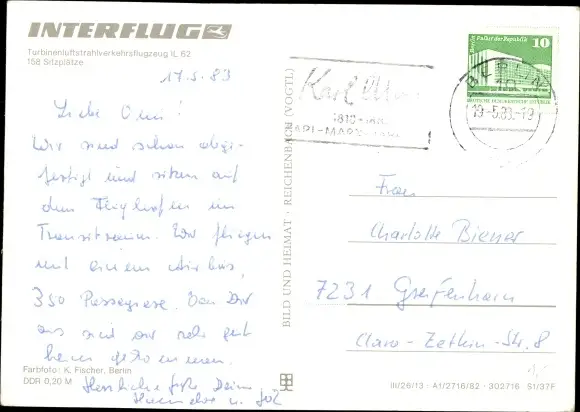 INTERFLUG
Turbinenluftstrahlverkehrsflugzeug IL 62
158 Sitzplätze
17.5.83
Liebe Omi!
Wir sind schon abge-
fertigt und sitzen auf
dem Flughafen im
Transitraum. Wir fliegen
mit einem Airbus,
350 Passagiere. Von Dir
aus sind wir sehr gut
heim gekommen.
Herzliche Grüße Deine
u.
Farbfoto: K. Fischer, Berlin
DDR 0,20 M
BILD UND HEIMAT · REICHENBACH (VOGTL)
Karl Mar
KARL-MARX-
Berlin, Palast der Republik
10
DEUTSCHE DEMOKRATISCHE REPUBLIK
BERLIN
19.-5.83.-19
Frau
Charlotte Biener
7231 Greifenhain
Clara-Zetkin-Str. 8
III/26/13 · A1/2716/82 · 302716 S1/37F